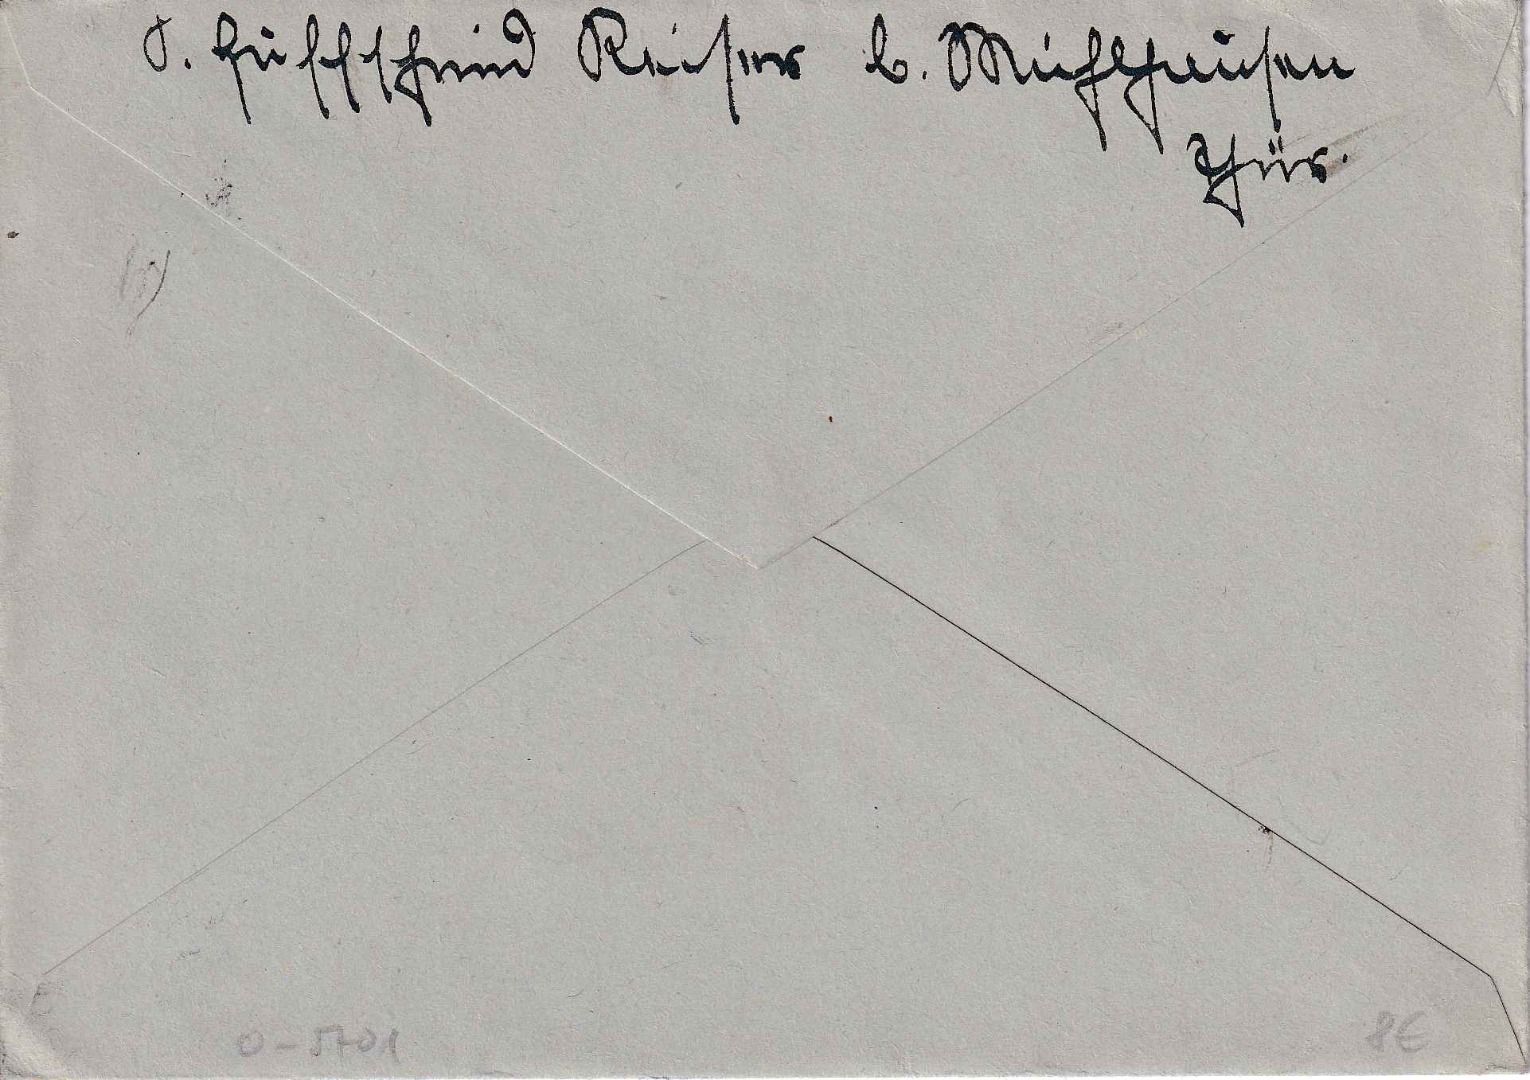 Reiser b. Mühlhausen
Thür.
0-5701 8€